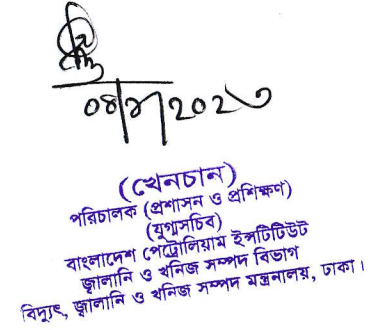 ০৪/৮/২০২৩
(খেনচান)
পরিচালক (প্রশাসন ও প্রশিক্ষণ)
(যুগ্মসচিব)
বাংলাদেশ পেট্রোলিয়াম ইন্সটিটিউট
জ্বালানি ও খনিজ সম্পদ বিভাগ
বিদ্যুৎ, জ্বালানি ও খনিজ সম্পদ মন্ত্রনালয়, ঢাকা।